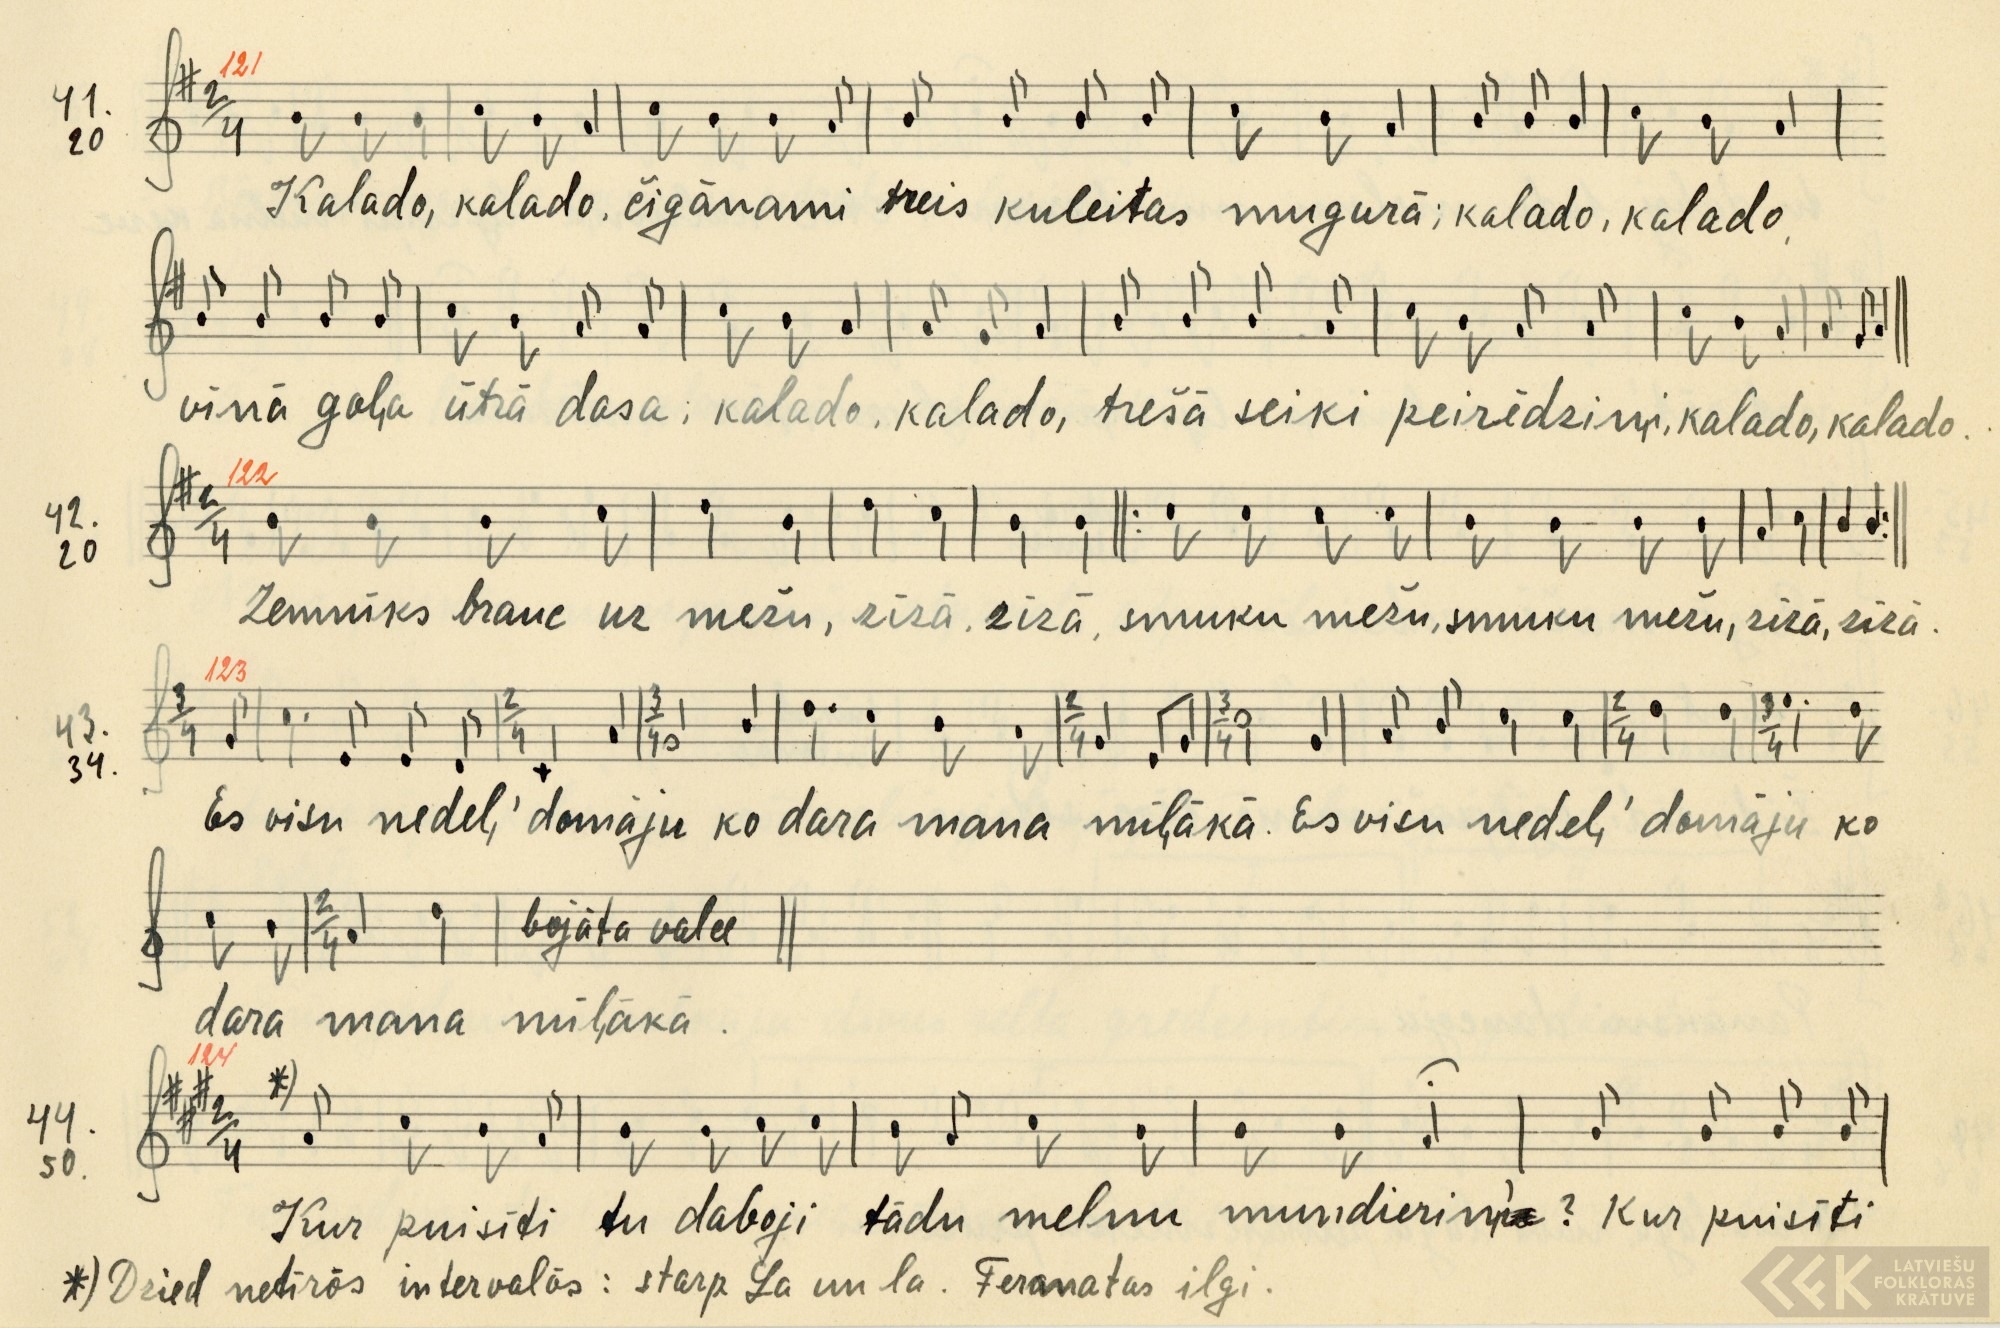 121
41.
20
2/4
Kalado, kalado, čigānami treis kuleitas mugurā; kalado, kalado,
vīnā goļa ūtrā dasa; kalado, kalado, trešā seiki peirēdziņi, kalado, kalado.
122
42.
20
2/4
Zemnīks brauc uz mežu, zizā, zizā, smuku mežu, smuku mežu, zizā, zizā.
123
43.
34.
3/4 2/4 3/4 2/4 3/4 2/4 3/4
Es visu nedeļ' domāju ko dara mana mīļākā. Es visu nedeļ' domāju ko
2/4 bojāta valce
dara mana mīļākā.
124
44.
50.
2/4 *)
Kur puisīti tu daboji tādu melnu mundieriņ'? Kur puisīti
*) Dzied netīrōs intervalōs: starp La un la. Fermatas ilgi.
LATVIEŠU
FOLKLORAS
KRĀTUVE